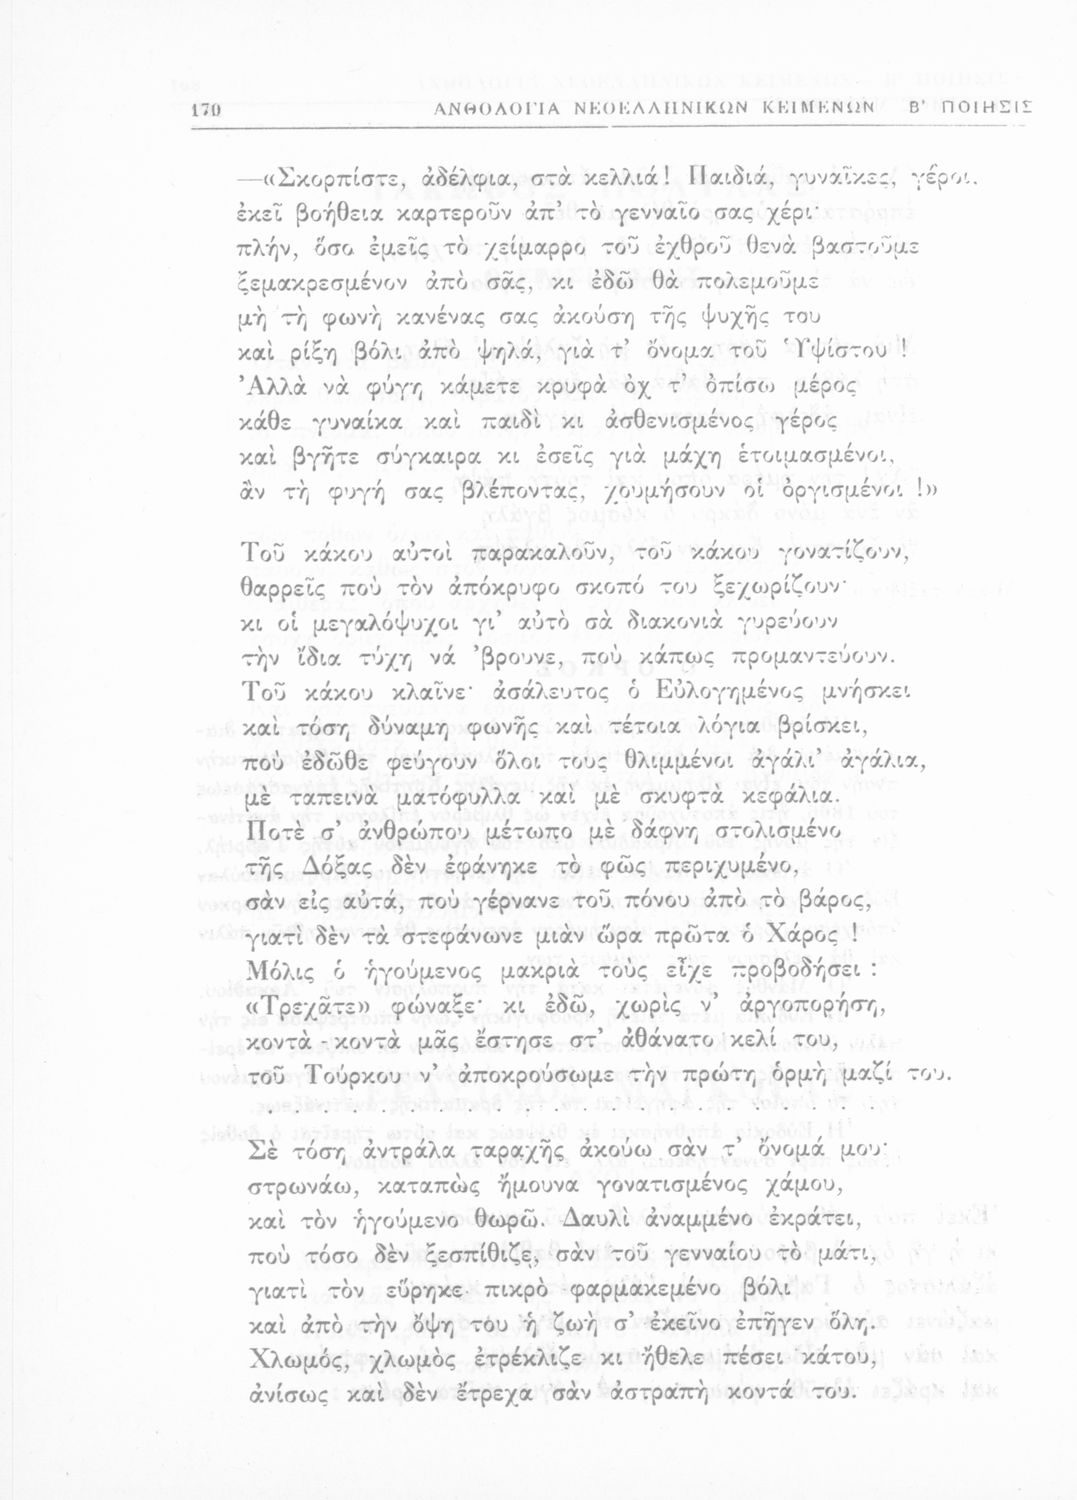 170
ΑΝΘΟΛΟΓΙΑ ΝΕΟΕΛΛΗΝΙΚΩΝ ΚΕΙΜΕΝΩΝ Β' ΠΟΙΗΣΙΣ
—«Σκορπίστε, ἀδέλφια, στὰ κελλιά! Παιδιά, γυναῖκες, γέροι,
ἐκεῖ βοήθεια καρτεροῦν ἀπ' τὸ γενναῖο σας χέρι·
πλήν, ὅσο ἐμεῖς τὸ χείμαρρο τοῦ ἐχθροῦ θενὰ βαστοῦμε
ξεμακρεσμένον ἀπὸ σᾶς, κι ἐδῶ θὰ πολεμοῦμε
μὴ τὴ φωνὴ κανένας σας ἀκούση τῆς ψυχῆς του
καὶ ρίξη βόλι ἀπὸ ψηλά, γιὰ τ' ὄνομα τοῦ Ὑψίστου !
Ἀλλὰ νὰ φύγη κάμετε κρυφὰ ὀχ τ' ὀπίσω μέρος
κάθε γυναίκα καὶ παιδὶ κι ἀσθενισμένος γέρος
καὶ βγῆτε σύγκαιρα κι ἐσεῖς γιὰ μάχη ἑτοιμασμένοι,
ἂν τὴ φυγή σας βλέποντας, χουμήσουν οἱ ὀργισμένοι !»
Τοῦ κάκου αὐτοὶ παρακαλοῦν, τοῦ κάκου γονατίζουν,
θαρρεῖς ποὺ τὸν ἀπόκρυφο σκοπό του ξεχωρίζουν·
κι οἱ μεγαλόψυχοι γι' αὐτὸ σὰ διακονιὰ γυρεύουν
τὴν ἴδια τύχη νά 'βρουνε, ποὺ κάπως προμαντεύουν.
Τοῦ κάκου κλαῖνε· ἀσάλευτος ὁ Εὐλογημένος μνήσκει
καὶ τόση δύναμη φωνῆς καὶ τέτοια λόγια βρίσκει,
ποὺ ἐδῶθε φεύγουν ὅλοι τους θλιμμένοι ἀγάλι' ἀγάλια,
μὲ ταπεινὰ ματόφυλλα καὶ μὲ σκυφτὰ κεφάλια.
Ποτὲ σ' ἀνθρώπου μέτωπο μὲ δάφνη στολισμένο
τῆς Δόξας δὲν ἐφάνηκε τὸ φῶς περιχυμένο,
σὰν εἰς αὐτά, ποὺ γέρνανε τοῦ πόνου ἀπὸ τὸ βάρος,
γιατὶ δὲν τὰ στεφάνωνε μιὰν ὥρα πρῶτα ὁ Χάρος !
Μόλις ὁ ἡγούμενος μακριὰ τοὺς εἶχε προβοδήσει :
«Τρεχᾶτε» φώναξε· κι ἐδῶ, χωρὶς ν' ἀργοπορήση,
κοντὰ - κοντὰ μᾶς ἔστησε στ' ἀθάνατο κελί του,
τοῦ Τούρκου ν' ἀποκρούσωμε τὴν πρώτη ὁρμὴ μαζί του.
. . . . . . . . . . . . . . . . . . . . . . .
Σὲ τόση ἀντράλα ταραχῆς ἀκούω σὰν τ' ὄνομά μου·
στρωνάω, καταπὼς ἤμουνα γονατισμένος χάμου,
καὶ τὸν ἡγούμενο θωρῶ. Δαυλὶ ἀναμμένο ἐκράτει,
ποὺ τόσο δὲν ξεσπίθιζε, σὰν τοῦ γενναίου τὸ μάτι,
γιατὶ τὸν εὕρηκε πικρὸ φαρμακεμένο βόλι
καὶ ἀπὸ τὴν ὄψη του ἡ ζωὴ σ' ἐκεῖνο ἐπῆγεν ὅλη.
Χλωμός, χλωμὸς ἐτρέκλιζε κι ἤθελε πέσει κάτου,
ἀνίσως καὶ δὲν ἔτρεχα σὰν ἀστραπὴ κοντά του.